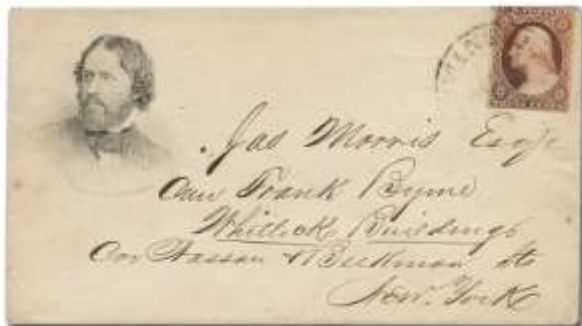 Jas Morris Esqr
Care Frank Byrne
Buildings
Cor Nassau & Beekman Sts
New York